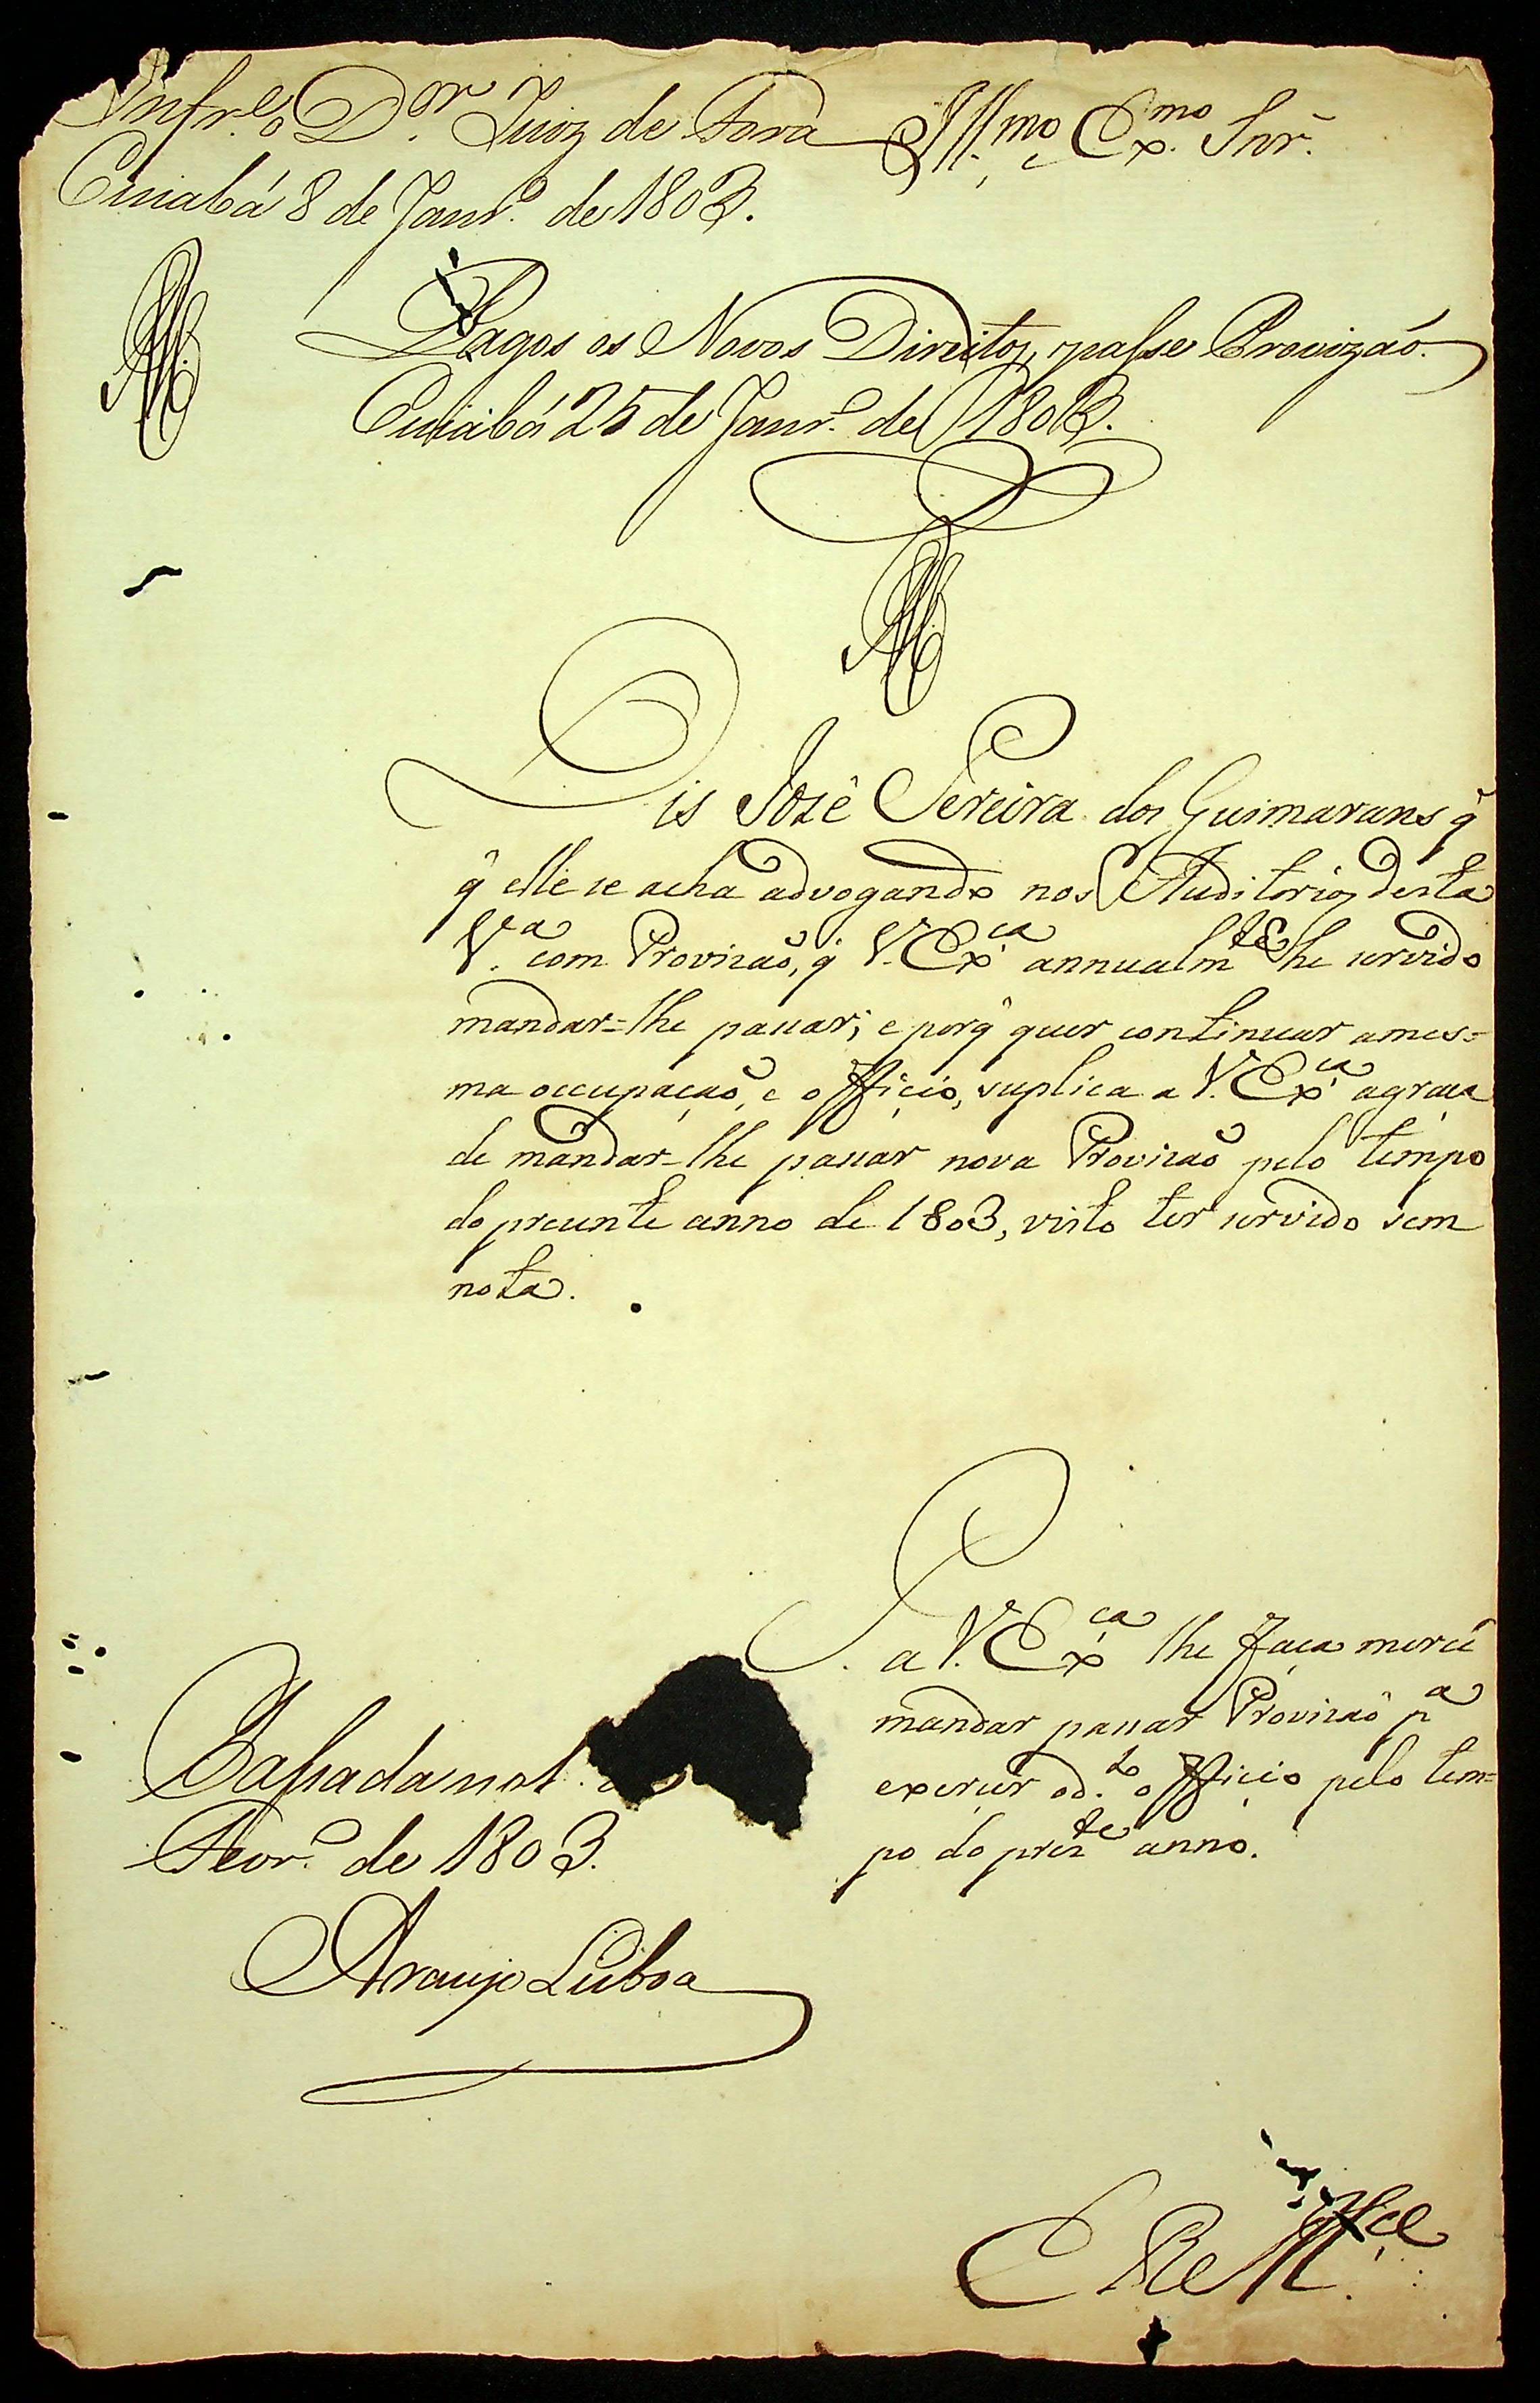 Infr.e o D.or Juiz de Fora
Cuiabá 8 de Janr.o de 1803.
Ill.mo e Ex.mo Snr.
Pagos os Novos Direitos, passe Provizaõ.
Cuiabá 25 de Janr.o de 1803.
Dis José Pereira dos Guimarans q̃
q̃ elle se acha advogando nos Auditorios desta
V.a com Provisaõ, q̃ V. Ex.ca annualm.te he servido
mandar=lhe passar; e porq̃ quer continuar a mes=
ma occupaçaõ, e officio, suplica a V. Ex.ca a graça
de mandar=lhe passar nova Provisaõ pelo tempo
do presente anno de 1803, visto ter servido sem
nota.
P. a V. Ex.ca lhe faça mercê
mandar passar Provisaõ p.a
exercer o d.to officio pelo tem=
po do prez.te anno.
Passada no 1.o
Fevr.o de 1803.
Araujo Lisboa
E R M.ce